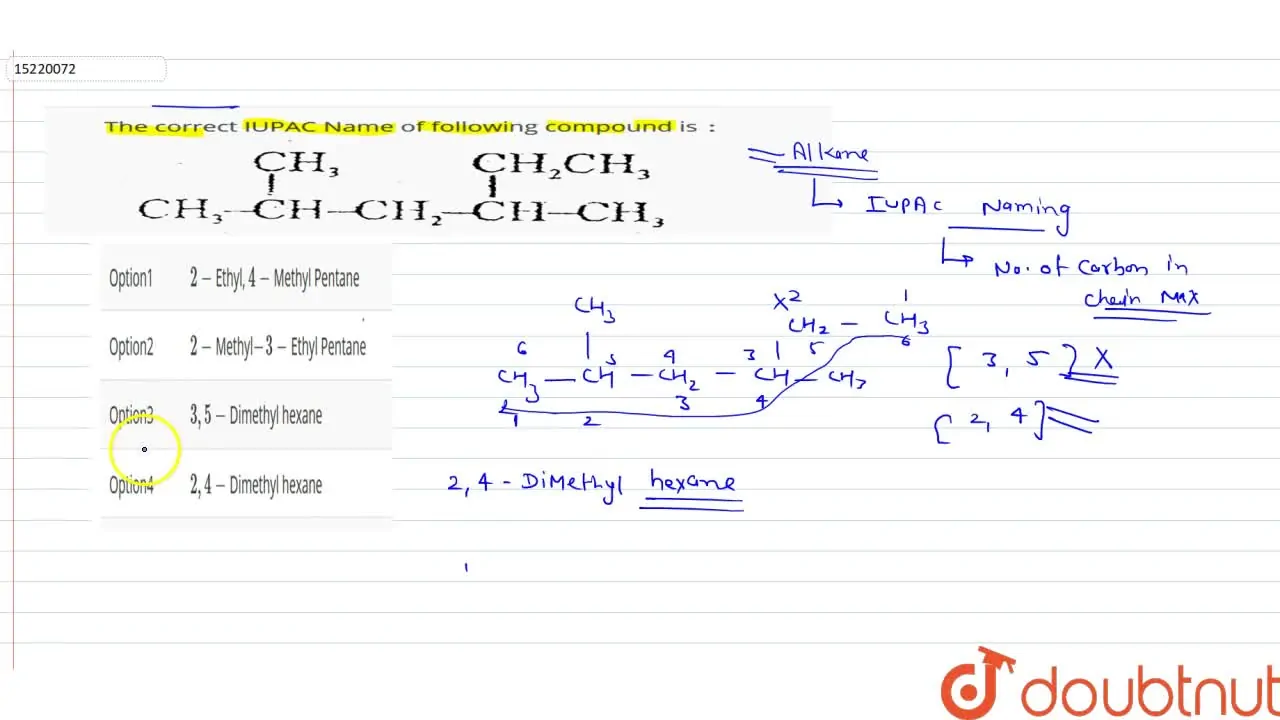 15220072
The correct IUPAC Name of following compound is :
CH₃ CH₂CH₃
CH₃—CH—CH₂—CH—CH₃
Option1 2 – Ethyl, 4 – Methyl Pentane
Option2 2 – Methyl–3 – Ethyl Pentane
Option3 3, 5 – Dimethyl hexane
Option4 2, 4 – Dimethyl hexane
Alkane
IUPAC Naming
No. of Carbon in
Chain Max
CH₃ X 2 1
CH₂ — CH₃
6 5 4 3 5 6
CH₃ — CH — CH₂ — CH — CH₃
1 2 3 4
[ 3, 5 ] X
[ 2, 4 ]
2, 4 - DiMethyl hexane
doubtnut